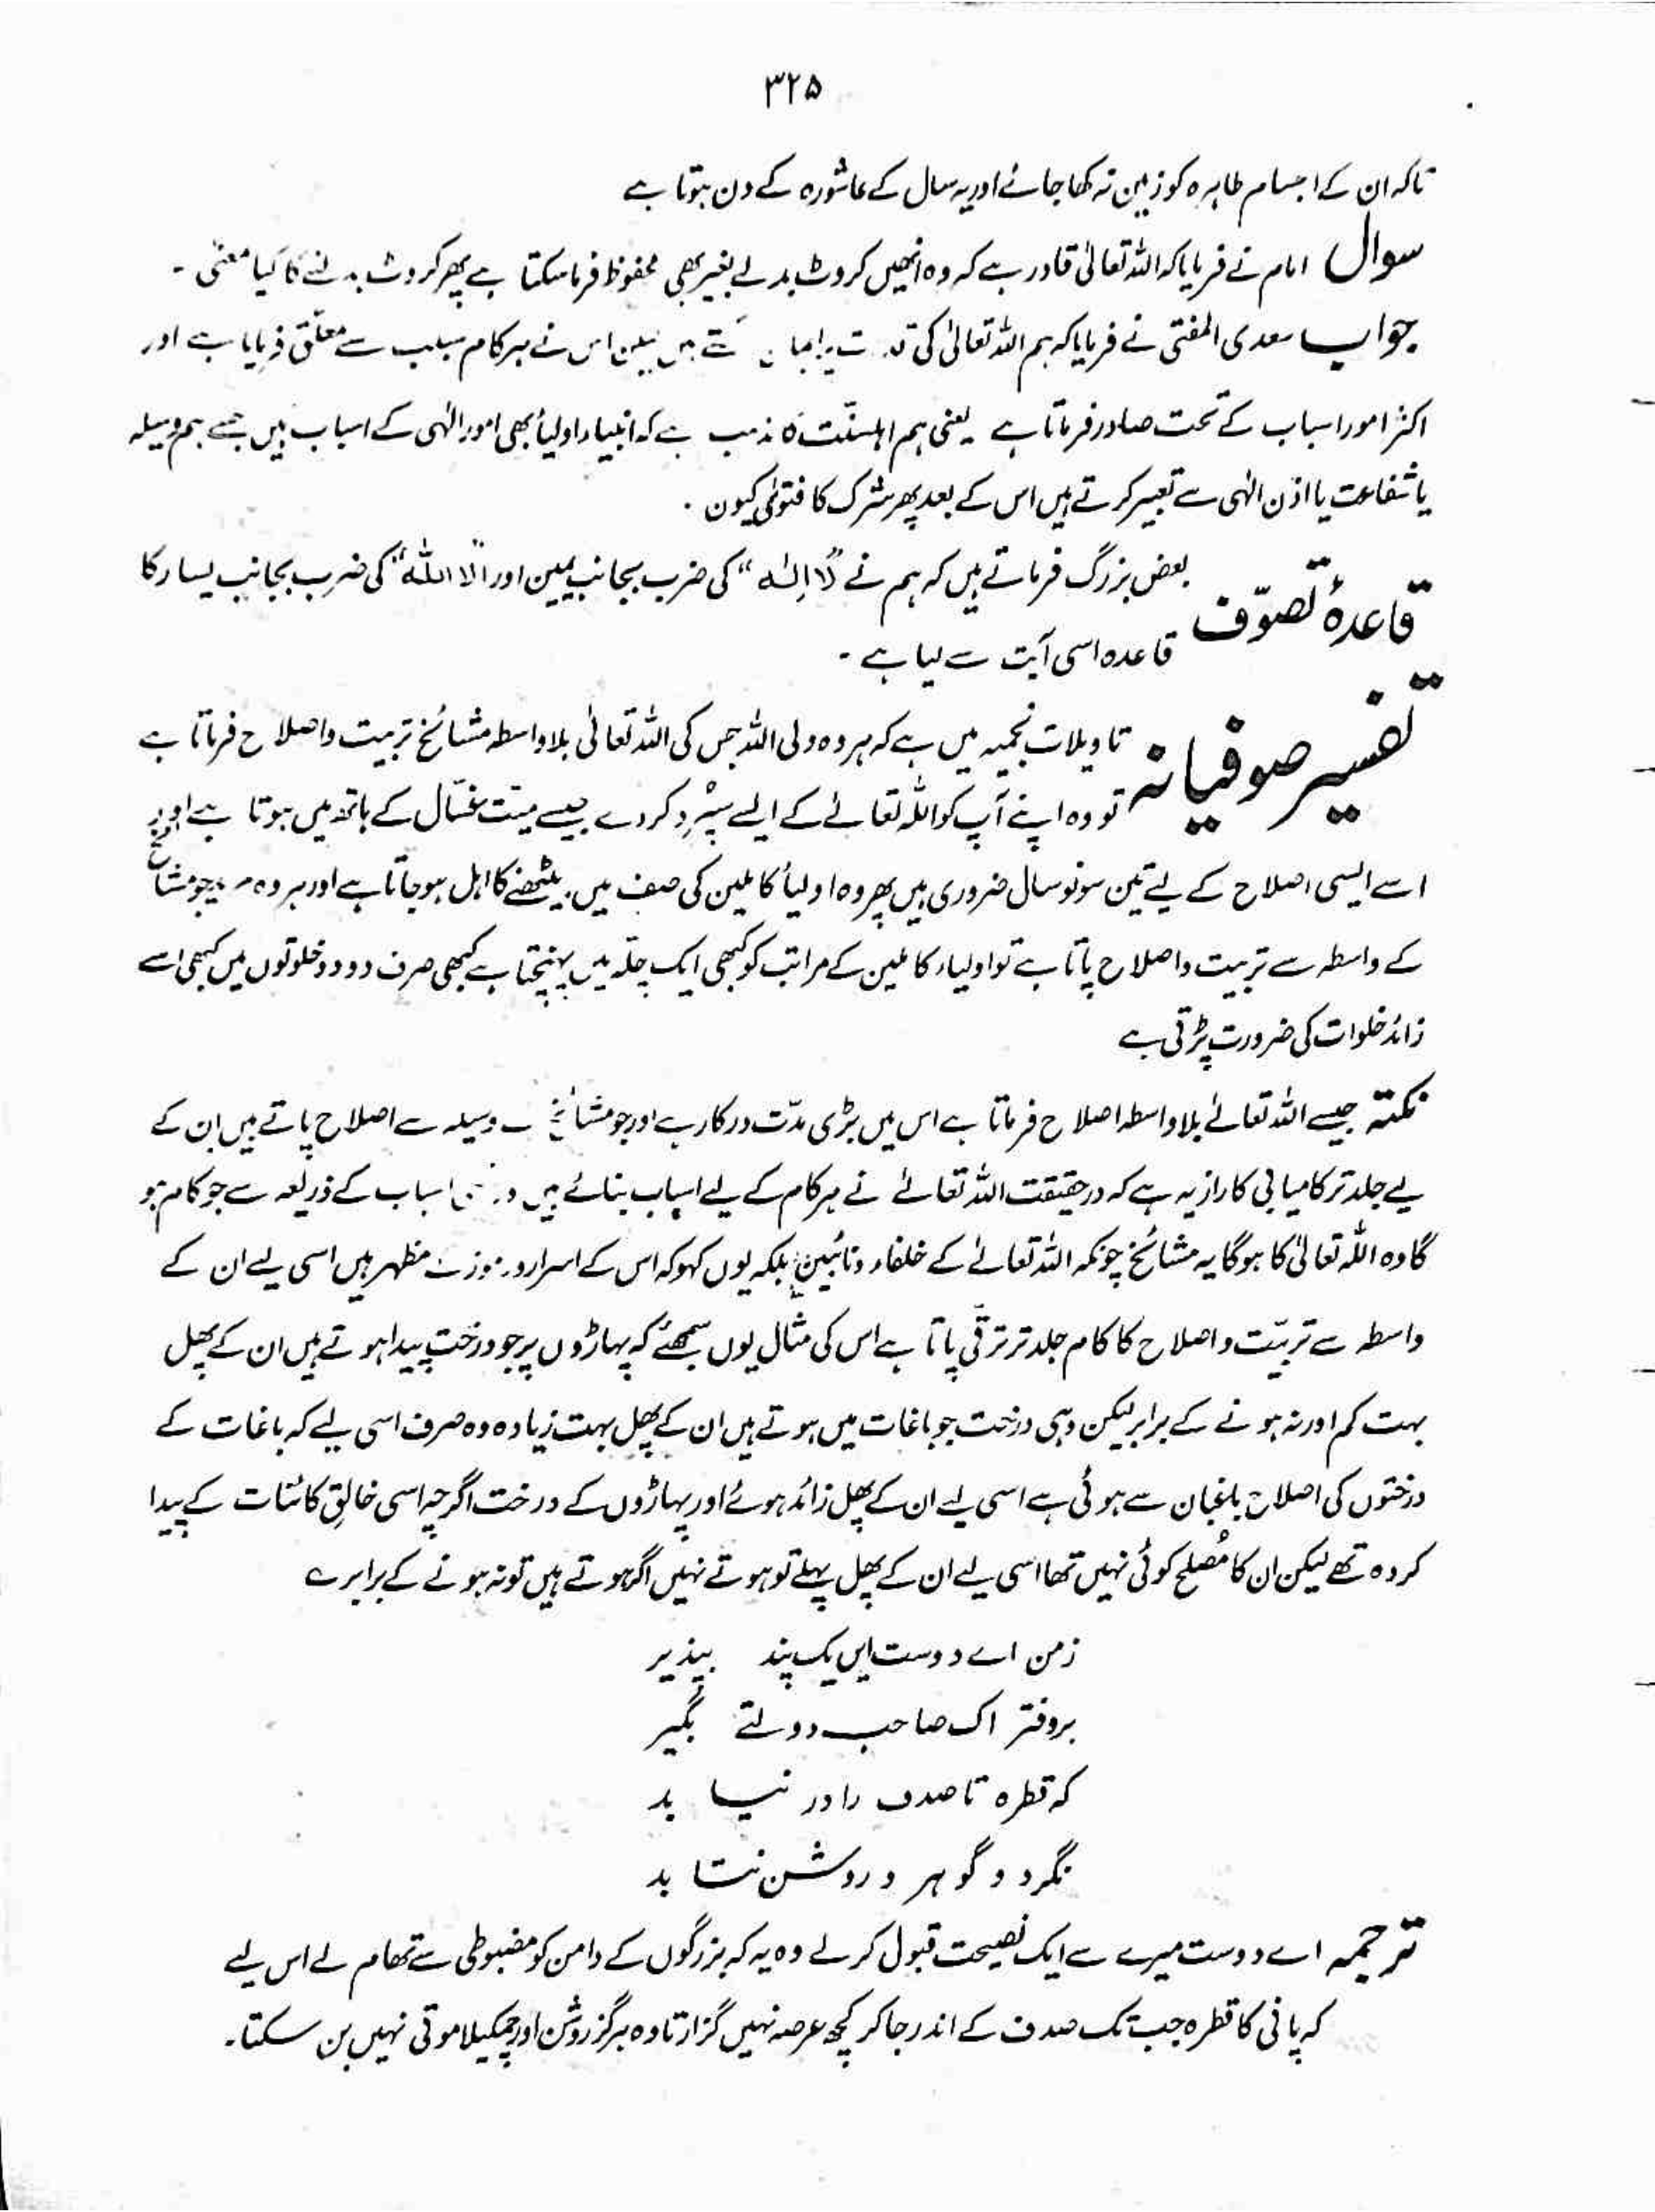 ۳۲۵
تاکہ ان کے اجسام طاہرہ کو زمین نہ کھا جائے اور یہ سال کے عاشورہ کے دن ہوتا ہے
سوال امام نے فرمایا کہ اللہ تعالیٰ قادر ہے کہ وہ انھیں کروٹ بدلے بغیر بھی محفوظ فرما سکتا ہے پھر کروٹ بدلنے کا کیا معنی ۔
جواب سعدی المفتی نے فرمایا کہ ہم اللہ تعالیٰ کی ہیں لیکن اس نے ہر کام سبب سے معلّق فرمایا ہے اور
اکثر امور اسباب کے تحت صادر فرماتا ہے یعنی ہم اہلسنّت کا مذہب ہے کہ انبیاء اولیأ بھی امور الٰہی کے اسباب ہیں جسے ہم وسیلہ
یا شفاعت یا اذن الٰہی سے تعبیر کرتے ہیں اس کے بعد پھر شرک کا فتویٰ کیون ۔
قاعدۂ تصوّف بعض بزرگ فرماتے ہیں کہ ہم نے ”لا الٰہ“ کی ضرب بجانب یمین اور ”الا اللہ“ کی ضرب بجانب یسار کا
قاعدہ اسی آیت سے لیا ہے ۔
تفسیر صوفیانہ تاویلات نجمیہ میں ہے کہ ہر وہ ولی اللہ جس کی اللہ تعالیٰ بلا واسطہ مشائخ تربیت و اصلاح فرماتا ہے
تو وہ اپنے آپ کو اللہ تعالےٰ کے ایسے سپُرد کر دے جیسے میّت غسّال کے ہاتھ میں ہوتا ہے اور
اسے ایسی اصلاح کے لیے تین سو نو سال ضروری ہیں پھر وہ اولیأ کاملین کی صف میں بیٹھنے کا اہل ہو جاتا ہے اور ہر وہ جو مشائخ
کے واسطہ سے تربیت و اصلاح پاتا ہے تو اولیاء کاملین کے مراتب کو کبھی ایک چلّہ میں پہنچتا ہے کبھی صرف دو دو خلوتوں میں کبھی اسے
زائد خلوات کی ضرورت پڑتی ہے
نکتہ جیسے اللہ تعالےٰ بلا واسطہ اصلاح فرماتا ہے اس میں بڑی مدّت درکار ہے اور جو مشائخ وسیلہ سے اصلاح پاتے ہیں ان کے
لیے جلد تر کامیابی کا راز یہ ہے کہ در حقیقت اللہ تعالےٰ نے ہر کام کے لیے اسباب بنائے ہیں اسباب کے ذریعہ سے جو کام ہو
گا وہ اللہ تعالیٰ کا ہو گا یہ مشائخ چونکہ اللہ تعالےٰ کے خلفاء و نائبین بلکہ یوں کہو کہ اس کے اسرار و رموز مظہر ہیں اسی لیے ان کے
واسطہ سے تربیّت و اصلاح کا کام جلد تر ترقّی پاتا ہے اس کی مثال یوں سمجھئے کہ پہاڑوں پر جو درخت پیدا ہوتے ہیں ان کے پھل
بہت کم اور نہ ہونے کے برابر لیکن وہی درخت جو باغات میں ہوتے ہیں ان کے پھل بہت زیادہ وہ صرف اسی لیے کہ باغات کے
درختوں کی اصلاح باغبان سے ہوئی ہے اسی لیے ان کے پھل زائد ہوئے اور پہاڑوں کے درخت اگرچہ اسی خالقِ کائنات کے پیدا
کردہ تھے لیکن ان کا مُصلح کوئی نہیں تھا اسی لیے ان کے پھل پہلے تو ہوتے نہیں اگر ہوتے ہیں تو نہ ہونے کے برابر ے
زمن اے دوست ایں یک پند بپذیر
بروفتر اک صاحب دولتے بگیر
کہ قطرہ تا صدف را در نیابد
نگردد و گوہر و روشن نتابد
ترجمہ اے دوست میرے سے ایک نصیحت قبول کر لے وہ یہ کہ بزرگوں کے دامن کو مضبوطی سے تھام لے اس لیے
کہ پانی کا قطرہ جب تک صدف کے اندر جا کر کچھ عرصہ نہیں گزارتا وہ ہرگز روشن اور چمکیلا موتی نہیں بن سکتا ۔